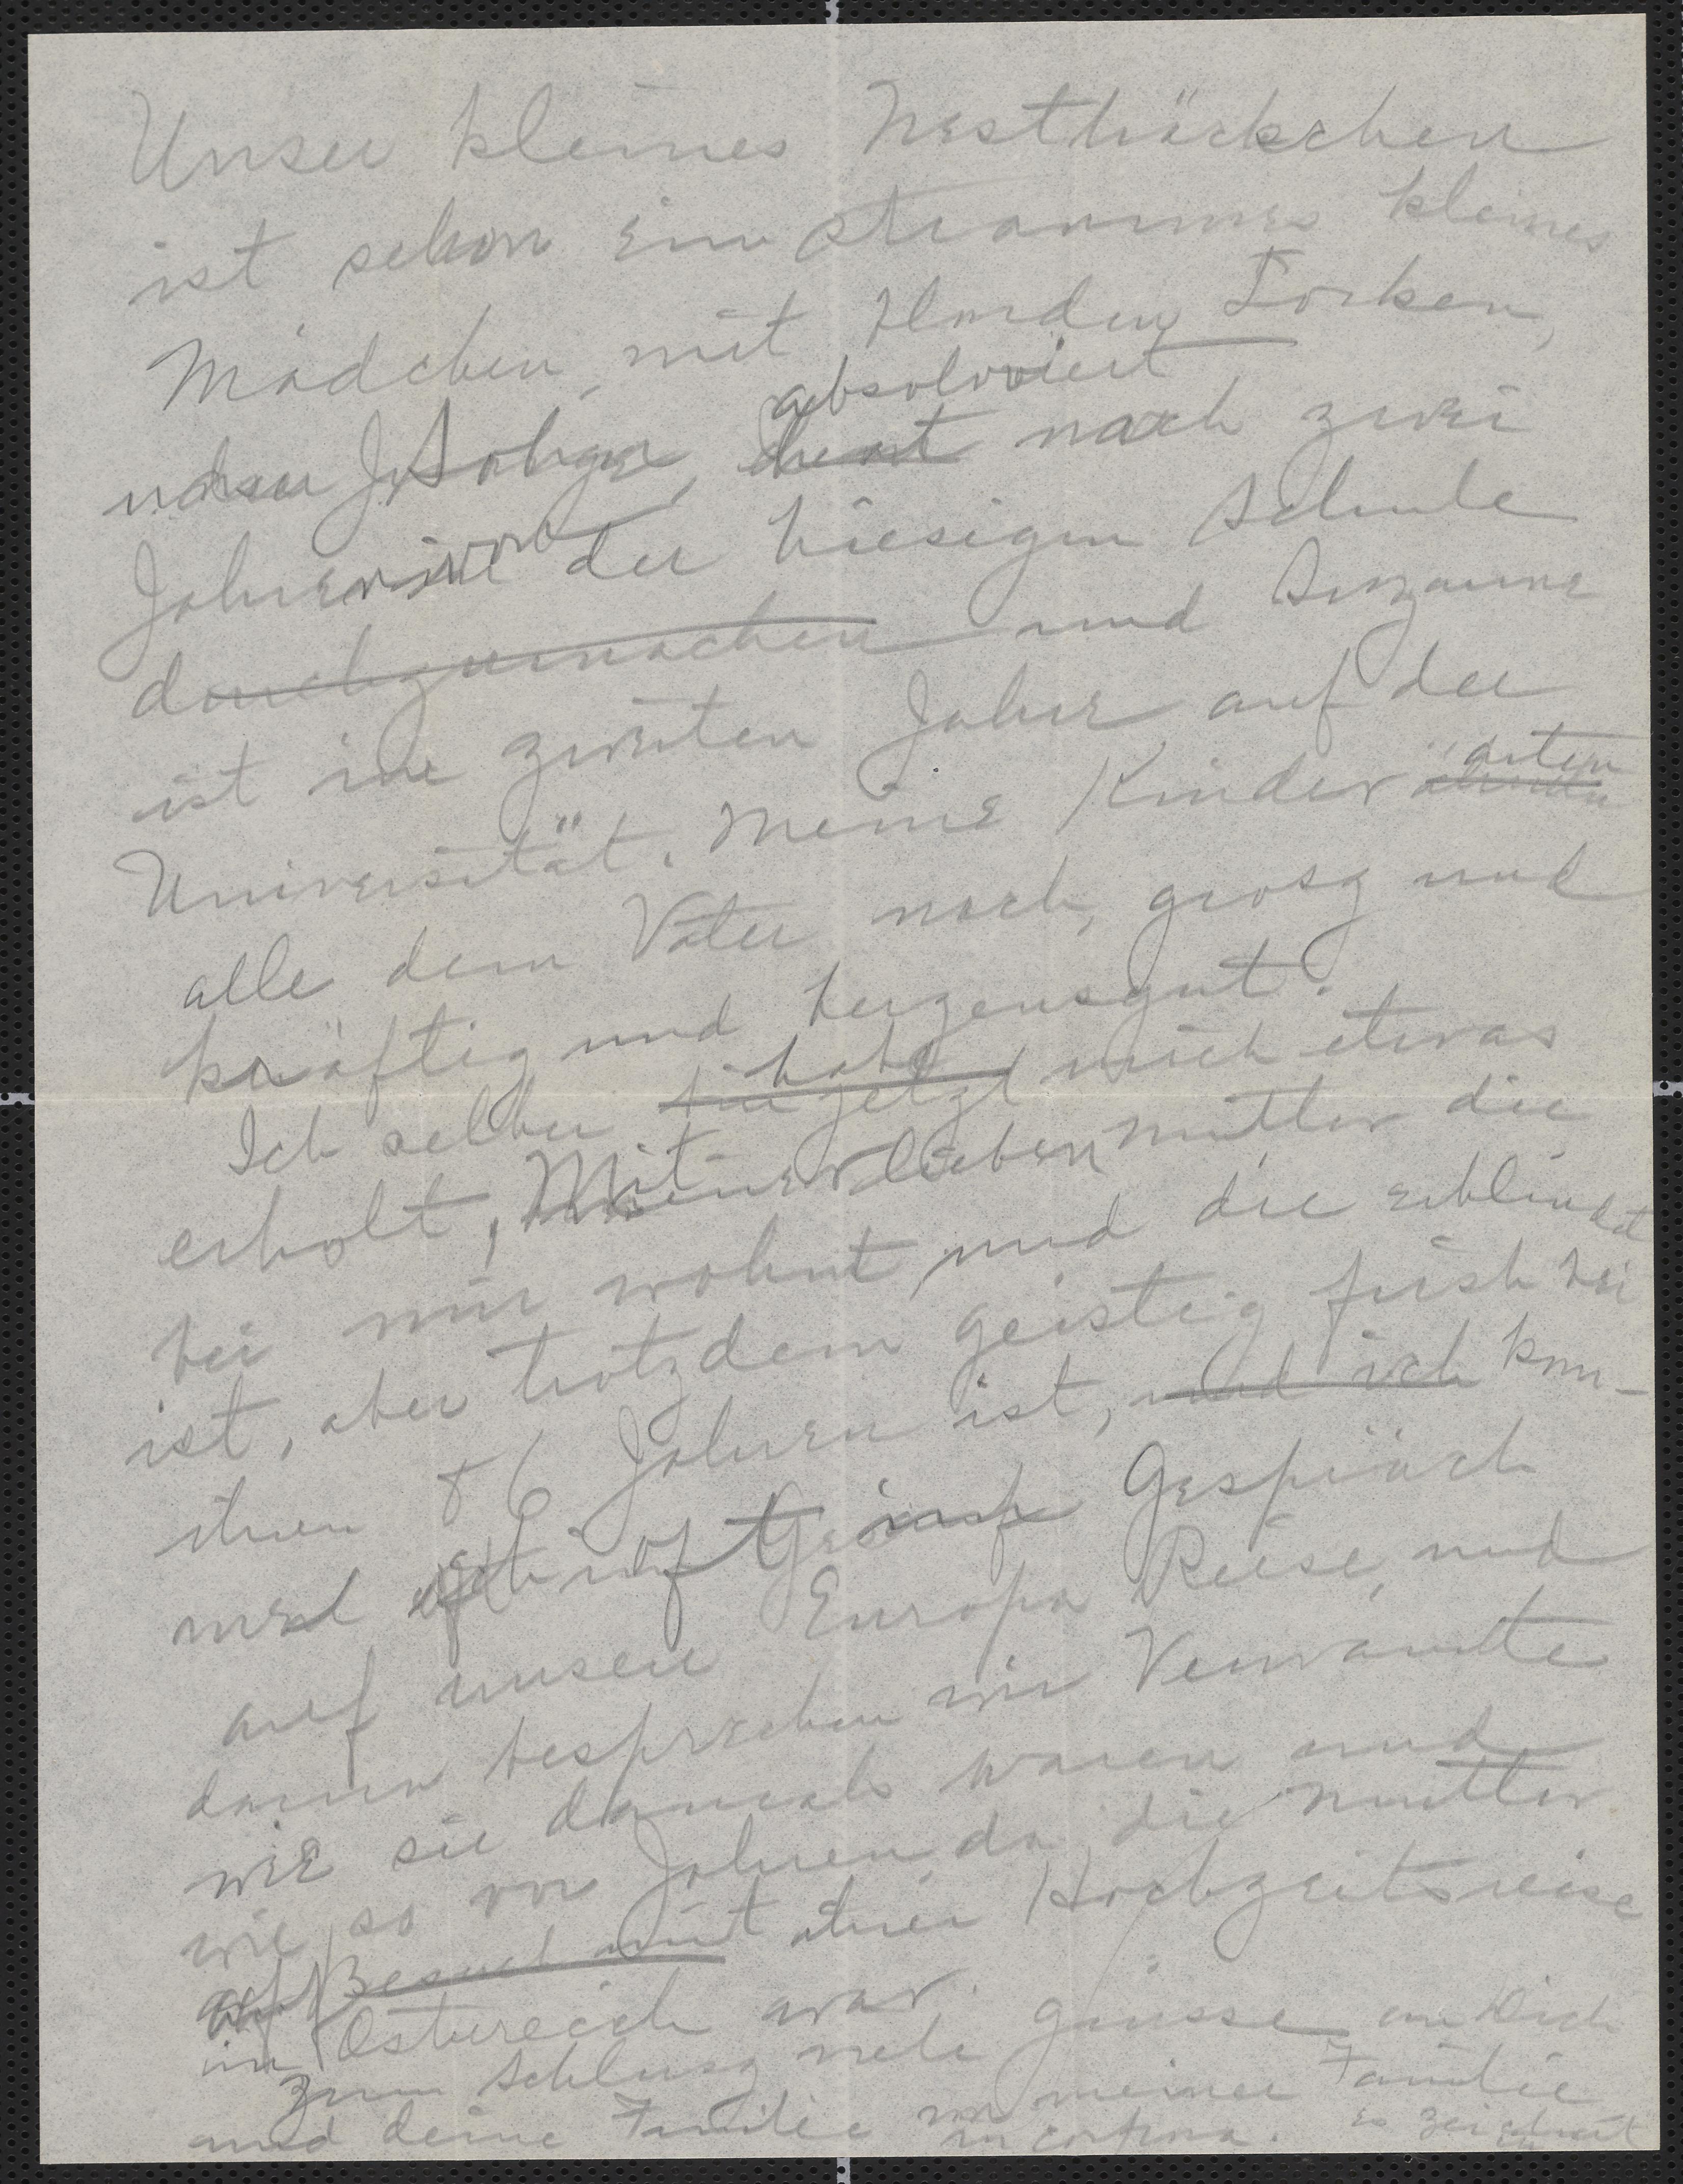 Unser kleines Nesthäckchen
ist schon ein strammes kleines
Mädchen, mit blonden Locken,
unser J. Sohn absolviert
nach zwei
Jahren der hiesigen Schule
durchzumachen und Suzanne
ist im zweiten Jahre auf der
Universität. Meine Kinder arten
alle dem Vater nach, grosz und
kräftig und herzensgut.
Ich selber habe jetzt mich etwas
erholt, Mit meiner lieben Mutter die
bei mir wohnt und die erblindet
ist, aber trotzdem geistig frish bei
ihren 86 Jahren ist, und ich kom-
men oft ins Gespräch
auf unsere Europa Reise, und
dann besprechen wir Verwandte
wie sie damals waren und
wie so vor Jahren, da die Mutter
auf Besuch mit ihrer Hochzeitsreise
in Östereich war.
Zum Schlusz viele grüsse an Dich
und deine Familie von meiner Familie
in corpora. Es zeichnet